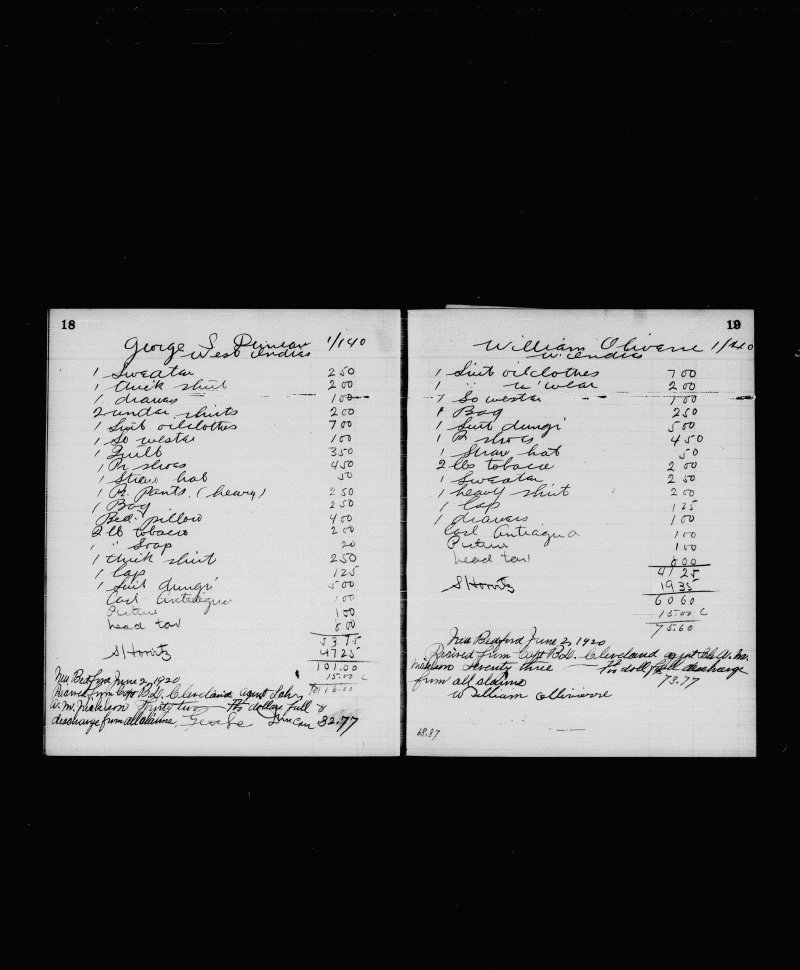 18
George S Duncan 1/140
West Indies
1 Sweater 2 50
1 thick shirt 2 00
1 drawers 1 00
2 under shirts 2 00
1 Suit oilclothes 7 00
1 So wester 1 00
1 Quilt 3 50
1 Pr shoes 4 50
1 Straw hat 50
1 Pr. Pants. (heavy) 2 50
1 Bag 2 50
Bed. pillow 4 00
2 lb tobacco 2 00
1 " Soap 20
1 thick shirt 2 50
1 Cap 1 25
1 Suit dungr 5 00
Cash Antiagua 1 00
Picture 1 00
head tax 8 00
53 75
S/Horvitz 47 25
101.00
15.00 c
116.00
New Bedford June 2, 1920
Recived from Capt B.D. Cleveland agent Schr
A. M. Nickleson Thirty two dollars full
discharge from all claims. George Duncan 32.77
19
William Olivere 1/140
W. Indies
1 Suit oilclothes 7 00
1 " u'wear 2 00
1 So wester 1 00
1 Bag 2 50
1 Suit dungr 5 00
1 Pr shoes 4 50
1 Straw hat 50
2 lbs tobacco 2 00
1 Sweater 2 50
1 heavy shirt 2 00
1 Cap 1 25
1 drawers 1 00
Cash Antiagua 1 00
Picture 1 00
head tax 8 00
41 25
S/Horvitz 19 35
60 60
15.00 C
75.60
New Bedford June 2, 1920
Recived from Capt B.D. Cleveland agent Sch A. M.
Nickleson Seventy three dolls full discharge
from all claims 73.77
William Olliviere
68.87